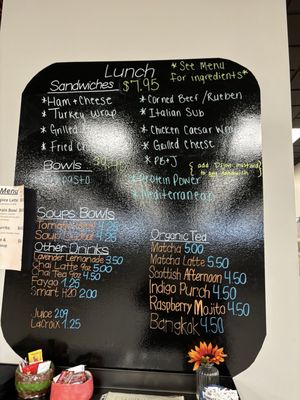 Lunch
Sandwiches $7.95
*See Menu
for ingredients*
*Ham + Cheese
*Turkey Wrap
*Grilled
*Fried
*Corned Beef/Rueben
*Italian Sub
*Chicken Caesar Wrap
*Grilled Cheese
*PB+J
{add Dijon mustard
to any sandwich}
Bowls
*Protein Power
*Mediterranean
Menu
Soups Bowls
Tomato
Soup
Other Drinks
Lavender Lemonade 3.50
Chai Latte 9oz 5.00
Chai Tea 9oz 4.50
Faygo 1.25
Smart H2O 2.00
Juice 2.09
LaCroix 1.25
Organic Tea
Matcha 5.00
Matcha Latte 5.50
Scottish Afternoon 4.50
Indigo Punch 4.50
Raspberry Mojito 4.50
Bangkok 4.50